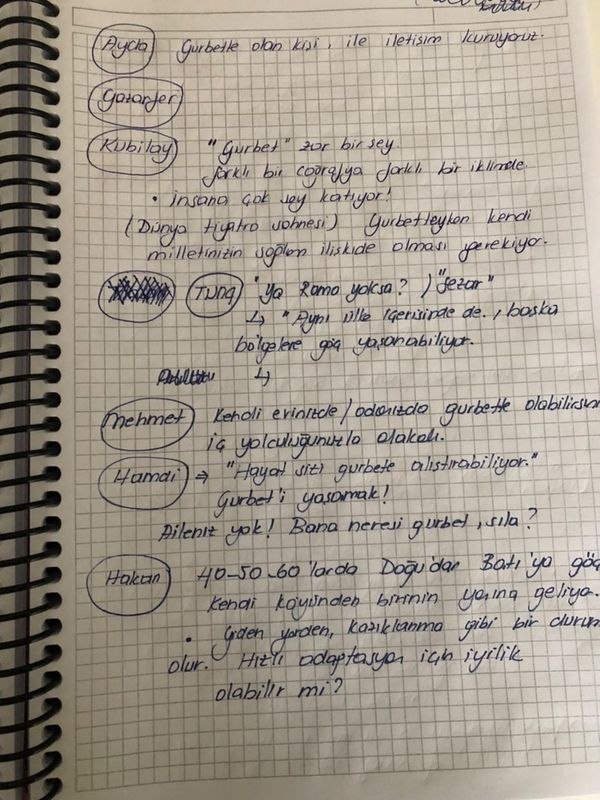 Ayda Gurbette olan kişi, ile iletişim kuruyoruz.
Gazanfer
Kubilay "Gurbet" zor bir şey.
farklı bir coğrafya farklı bir iklimde.
• İnsana çok şey katıyor!
(Dünya tiyatro sahnesi) Gurbetteyken kendi
milletinizin toplum ilişkide olması gerekiyor.
Tunç "Ya Roma yoksa? / "Sezar"
↳ "Aynı ülke içerisinde de, başka
bölgelere göç yaşanabiliyor.
↳
Mehmet Kendi evinizde/odanızda gurbette olabilirsin
iç yolculuğunuzla alakalı.
Hamdi → "Hayat sizi gurbete alıştırabiliyor."
Gurbet'i yaşamak!
Aileniz yok! Bana neresi gurbet, sıla?
Hakan 40-50-60'larda Doğu'dan Batı'ya göç
Kendi köyünden birinin yanına geliyor.
• Giden yerden, kazıklanma gibi bir durum
olur. Hızlı adaptasyon için iyilik
olabilir mi?